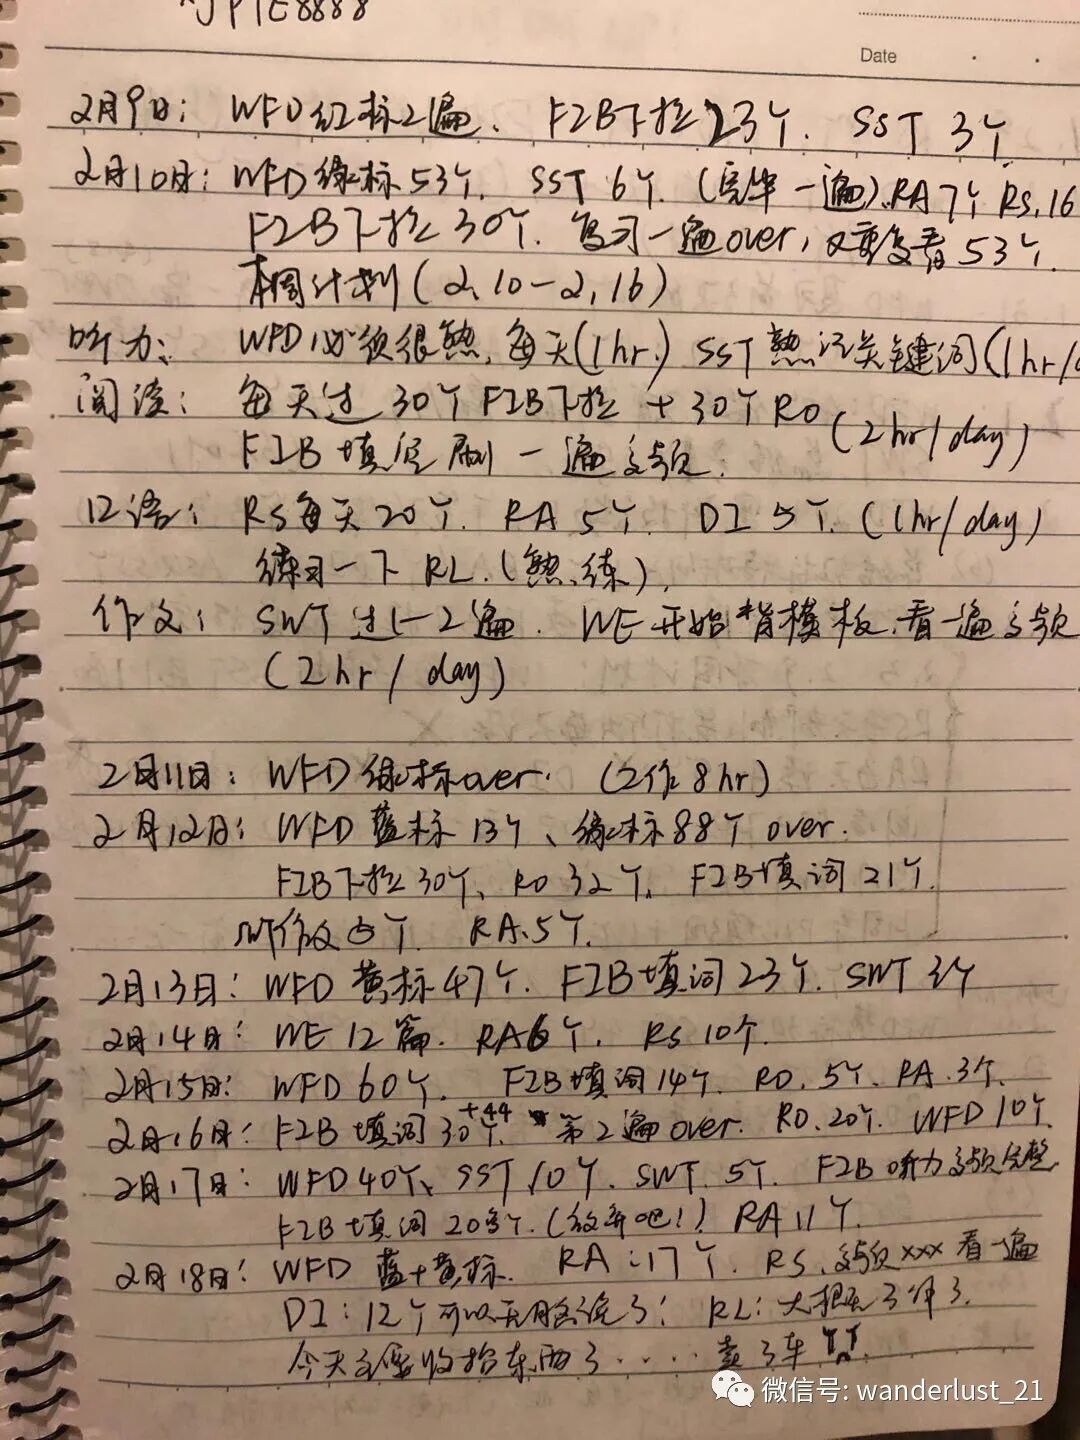 JPTE8888
Date
2月9日: WFD红标2遍、 FIB下拉23个. SST 3个.
2月10日: WFD绿标53个. SST 6个. (完毕一遍). RA 7个 RS.16
FIB下拉30个. 复习一遍over, 又重复看53个.
本周计划(2.10-2.16)
听力: WFD必须很熟, 每天(1hr.) SST熟记关键词(1hr/
阅读: 每天过30个FIB下拉+30个RO (2hr/day)
FIB填空刷一遍高频.
口语: RS每天20个. RA 5个. DI 5个. (1hr/day)
练习一下RL.(熟练).
作文: SWT过1-2遍. WE开始背模板, 看一遍高频
(2hr/day)
2月11日: WFD绿标over. (工作8hr)
2月12日: WFD蓝标13个、绿标88个over.
FIB下拉30个、RO 32个. FIB填词21个.
作文 个 RA.5个.
2月13日: WFD黄标47个. FIB填词23个. SWT 3个
2月14日: WE 12篇. RA6个. RS 10个.
2月15日: WFD 60个. FIB填词14个. RO.5个. RA.3个.
2月16日: FIB填词30个+44 第2遍over. RO.20个. WFD 10个.
2月17日: WFD 40个、SST 10个. SWT.5个. FIB听力高频完整.
FIB填词20多个.(放弃吧!) RA 11个.
2月18日: WFD蓝+黄标. RA:17个. RS.高频xxx看一遍
DI:12个可以无脑说了! RL:大概看了
今天主要收拾东西了..... 卖了车TT.
微信号: wanderlust_21